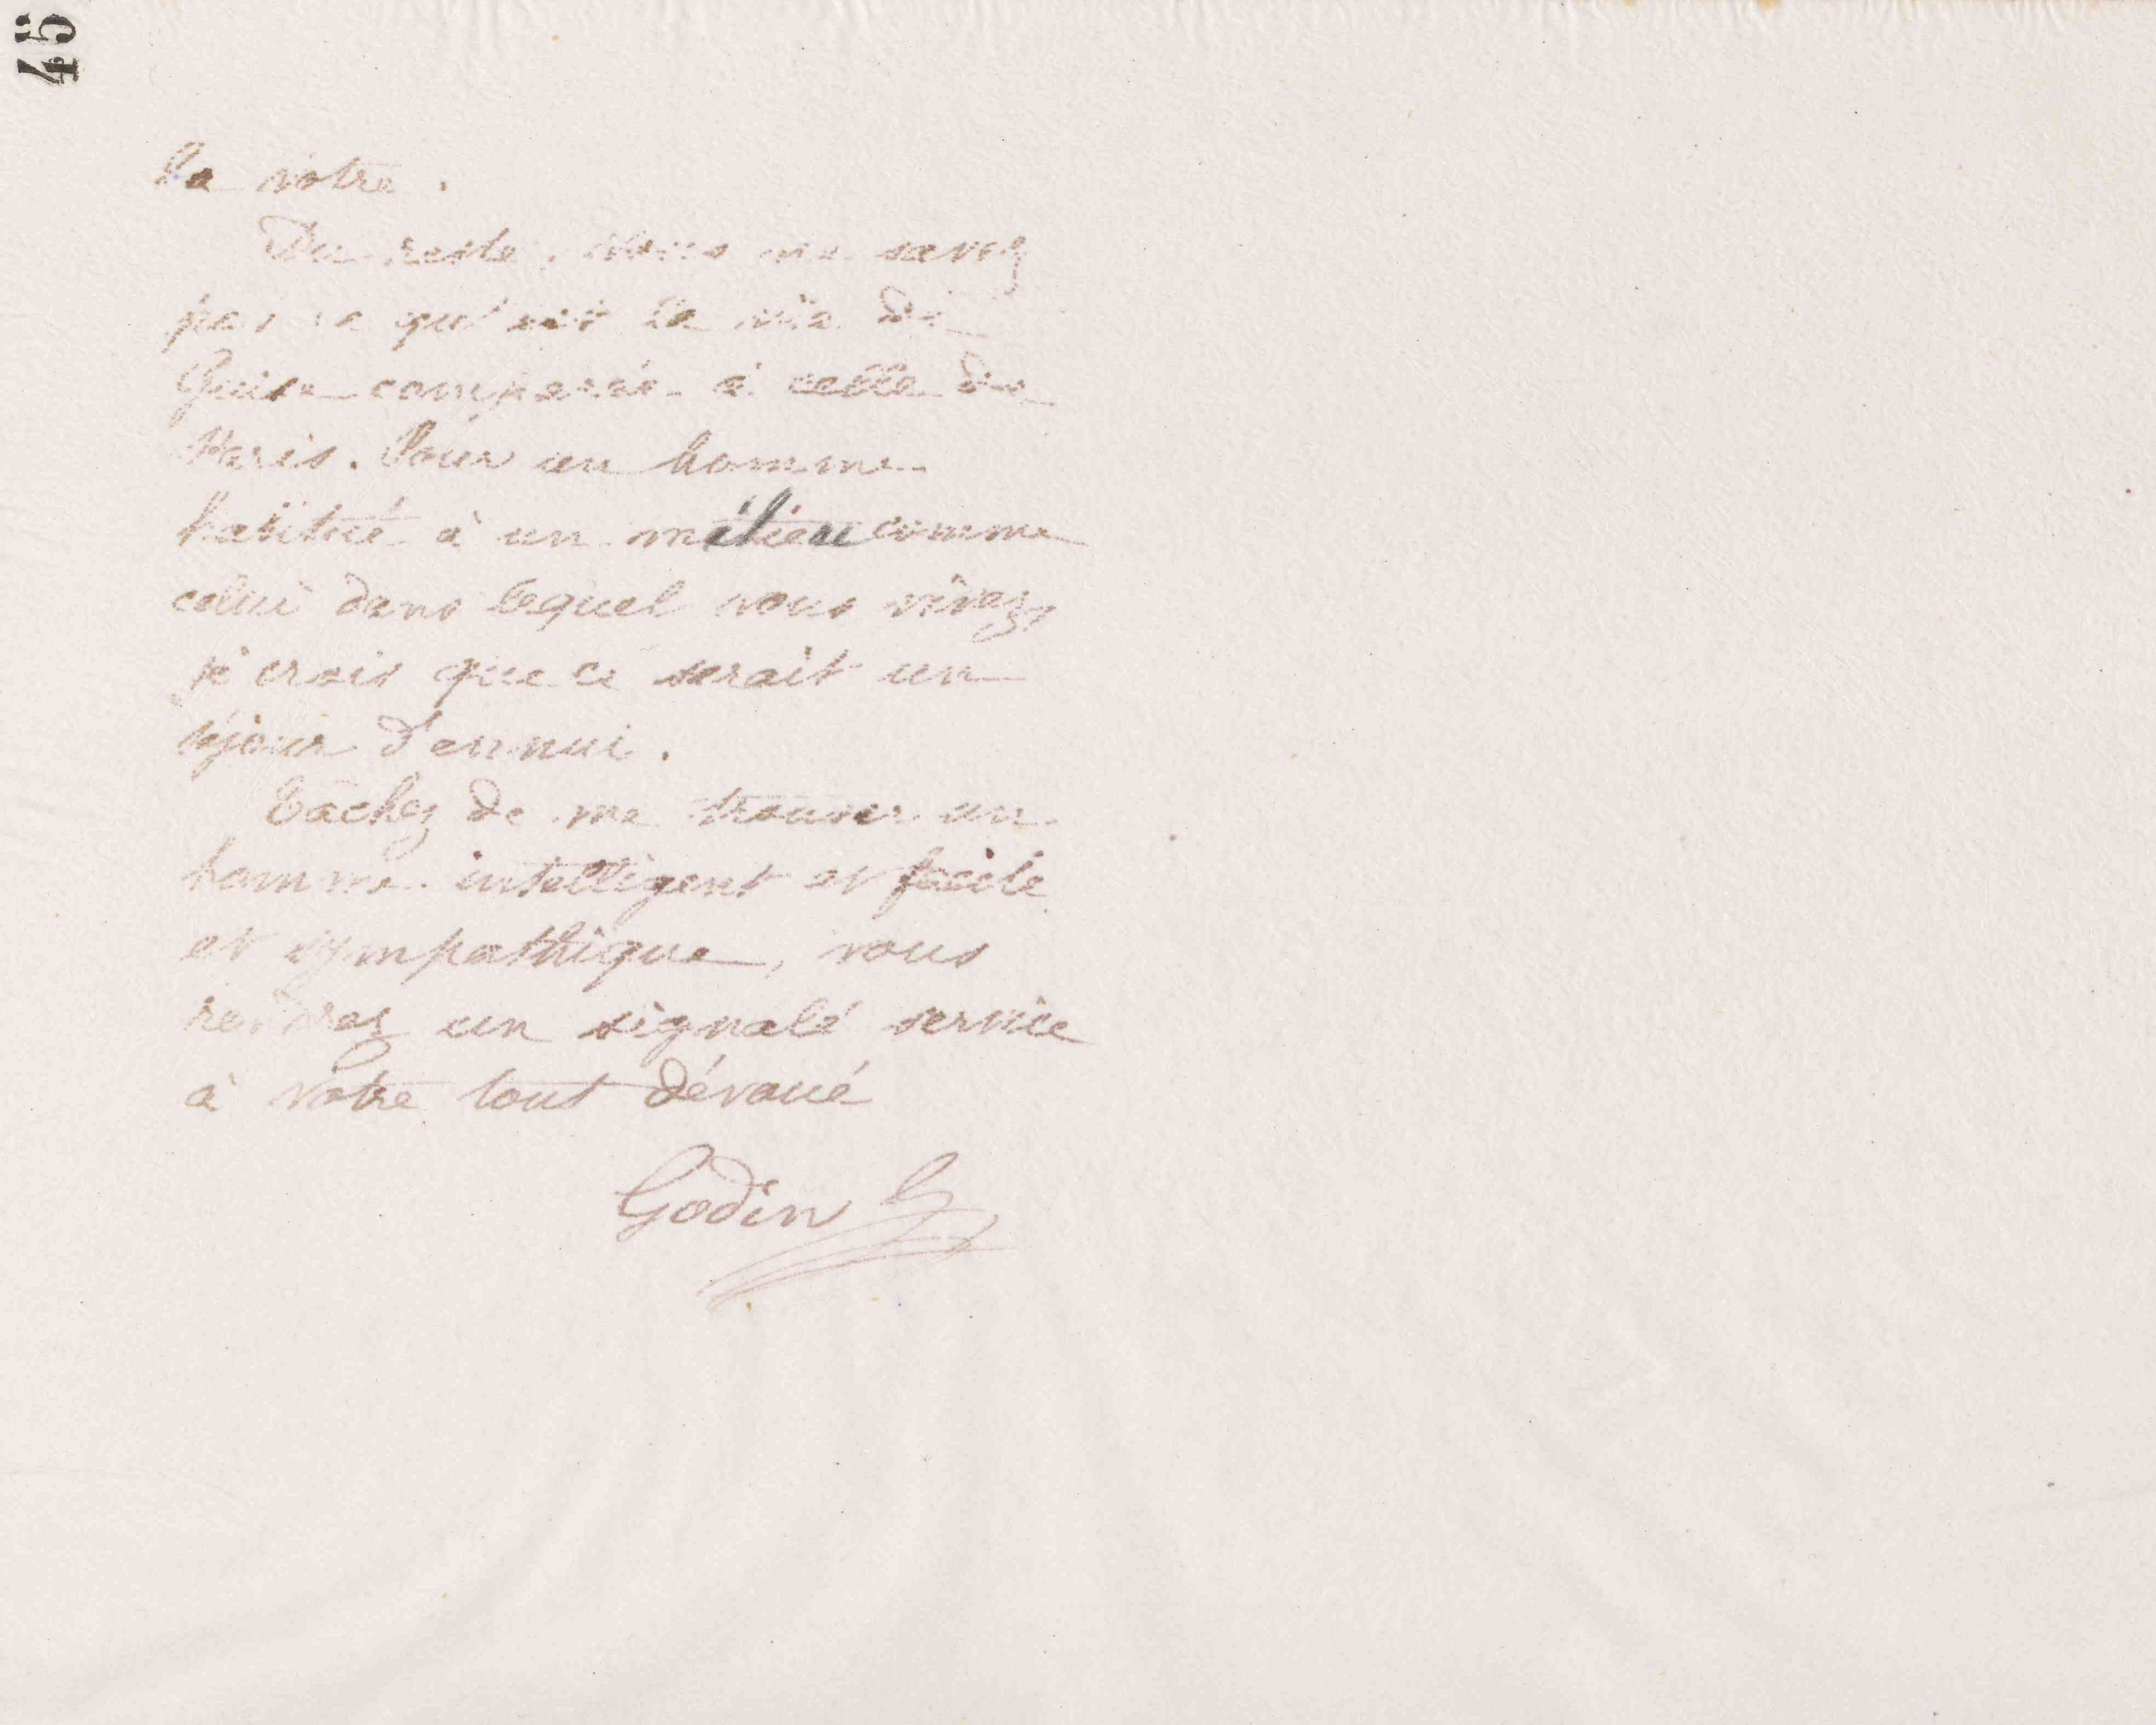 45
la vôtre.
Du reste, vous ne savez
pas ce qu'est la vie de
Guise comparée à celle de
Paris. Pour un homme
habitué à un milieu comme
celui dans lequel vous vivez,
je crois que ce serait un
séjour d'ennui.
Tâchez de me trouver un
homme intelligent et facile
et sympathique, vous
rendrez un signalé service
à votre tout dévoué
Godin